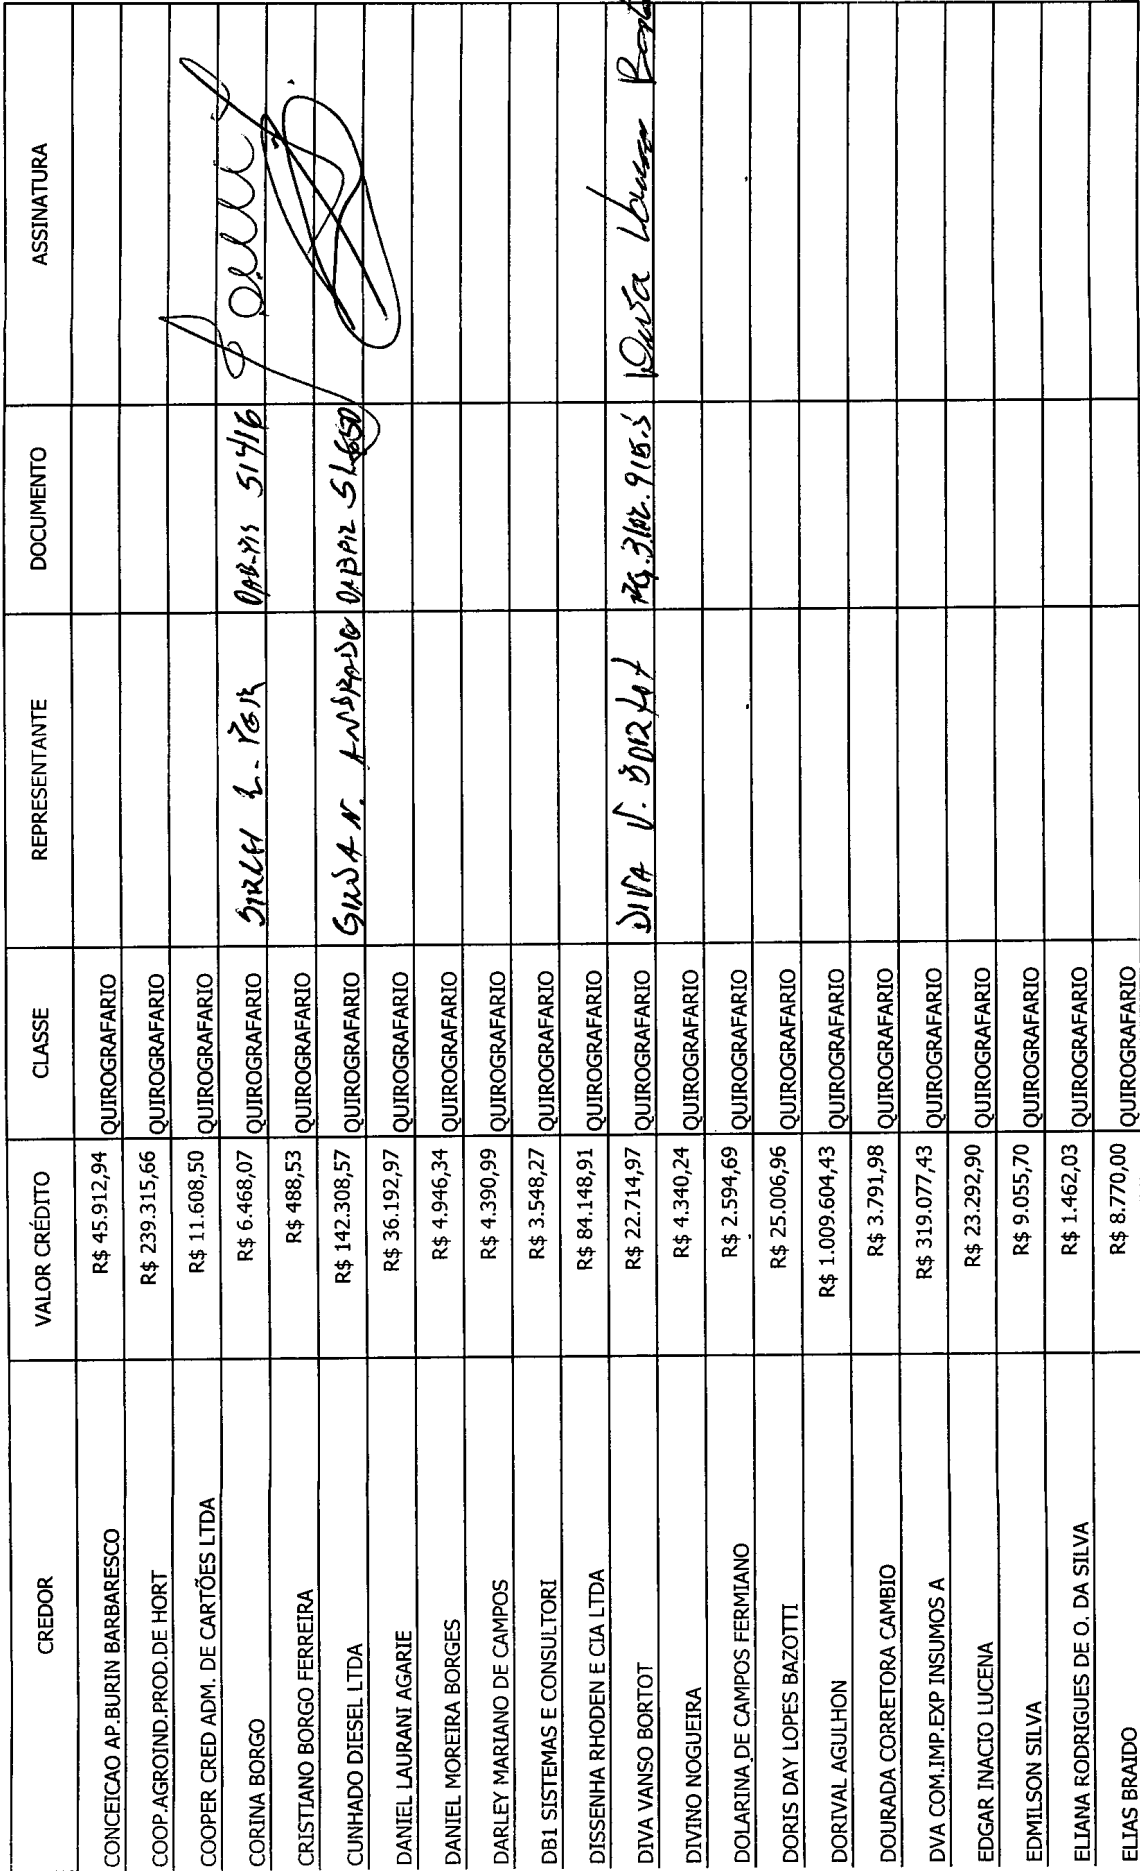 CREDOR VALOR CRÉDITO CLASSE REPRESENTANTE DOCUMENTO ASSINATURA
CONCEICAO AP.BURIN BARBARESCO R$ 45.912,94 QUIROGRAFARIO
COOP.AGROIND.PROD.DE HORT R$ 239.315,66 QUIROGRAFARIO
COOPER CRED ADM. DE CARTÕES LTDA R$ 11.608,50 QUIROGRAFARIO
CORINA BORGO R$ 6.468,07 QUIROGRAFARIO 51416
CRISTIANO BORGO FERREIRA R$ 488,53 QUIROGRAFARIO
CUNHADO DIESEL LTDA R$ 142.308,57 QUIROGRAFARIO N. ANDRADE OABPR 51.650
DANIEL LAURANI AGARIE R$ 36.192,97 QUIROGRAFARIO
DANIEL MOREIRA BORGES R$ 4.946,34 QUIROGRAFARIO
DARLEY MARIANO DE CAMPOS R$ 4.390,99 QUIROGRAFARIO
DB1 SISTEMAS E CONSULTORI R$ 3.548,27 QUIROGRAFARIO
DISSENHA RHODEN E CIA LTDA R$ 84.148,91 QUIROGRAFARIO
DIVA VANSO BORTOT R$ 22.714,97 QUIROGRAFARIO DIVA V. BORTOT Diva
DIVINO NOGUEIRA R$ 4.340,24 QUIROGRAFARIO
DOLARINA DE CAMPOS FERMIANO R$ 2.594,69 QUIROGRAFARIO
DORIS DAY LOPES BAZOTTI R$ 25.006,96 QUIROGRAFARIO
DORIVAL AGULHON R$ 1.009.604,43 QUIROGRAFARIO
DOURADA CORRETORA CAMBIO R$ 3.791,98 QUIROGRAFARIO
DVA COM.IMP.EXP INSUMOS A R$ 319.077,43 QUIROGRAFARIO
EDGAR INACIO LUCENA R$ 23.292,90 QUIROGRAFARIO
EDMILSON SILVA R$ 9.055,70 QUIROGRAFARIO
ELIANA RODRIGUES DE O. DA SILVA R$ 1.462,03 QUIROGRAFARIO
ELIAS BRAIDO R$ 8.770,00 QUIROGRAFARIO